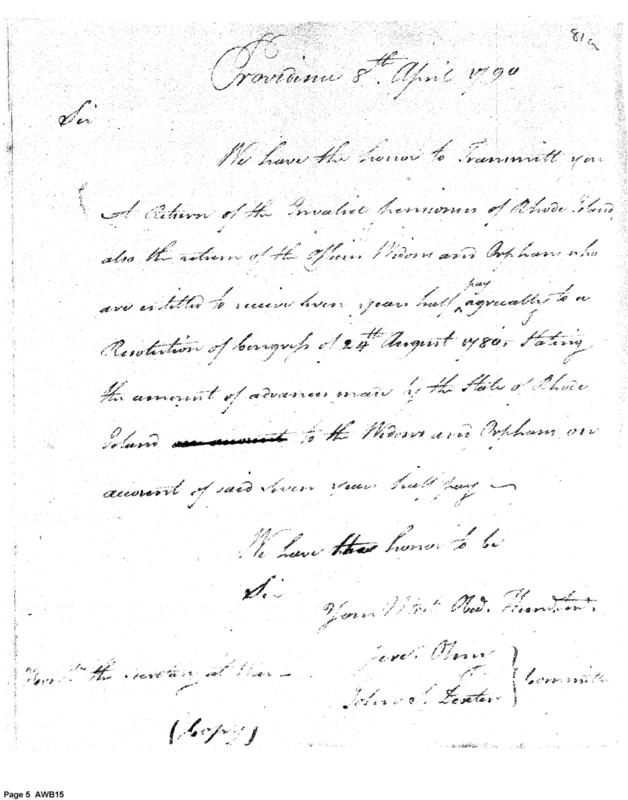 81a
Providence 8th. April 1790
Sir
We have the honor to Transmitt you
A Return of the Invalid pensioners of Rhode Island,
also the return of the Officers Widows and Orphans who
are entitled to receive seven years half pay agreeably to a
Resolution of Congress of 24th August 1780. Stating
the amount of advances made by the State of Rhode
Island on account to the Widows and Orphans, on
account of said seven years half pay
We have the honor to be
Sir
Your Most Obd. Humb. Servt.
Jere. Olney
Honble. the Secretary at War
John S. Dexter } Committee
(Copy)
Page 5 AWB15